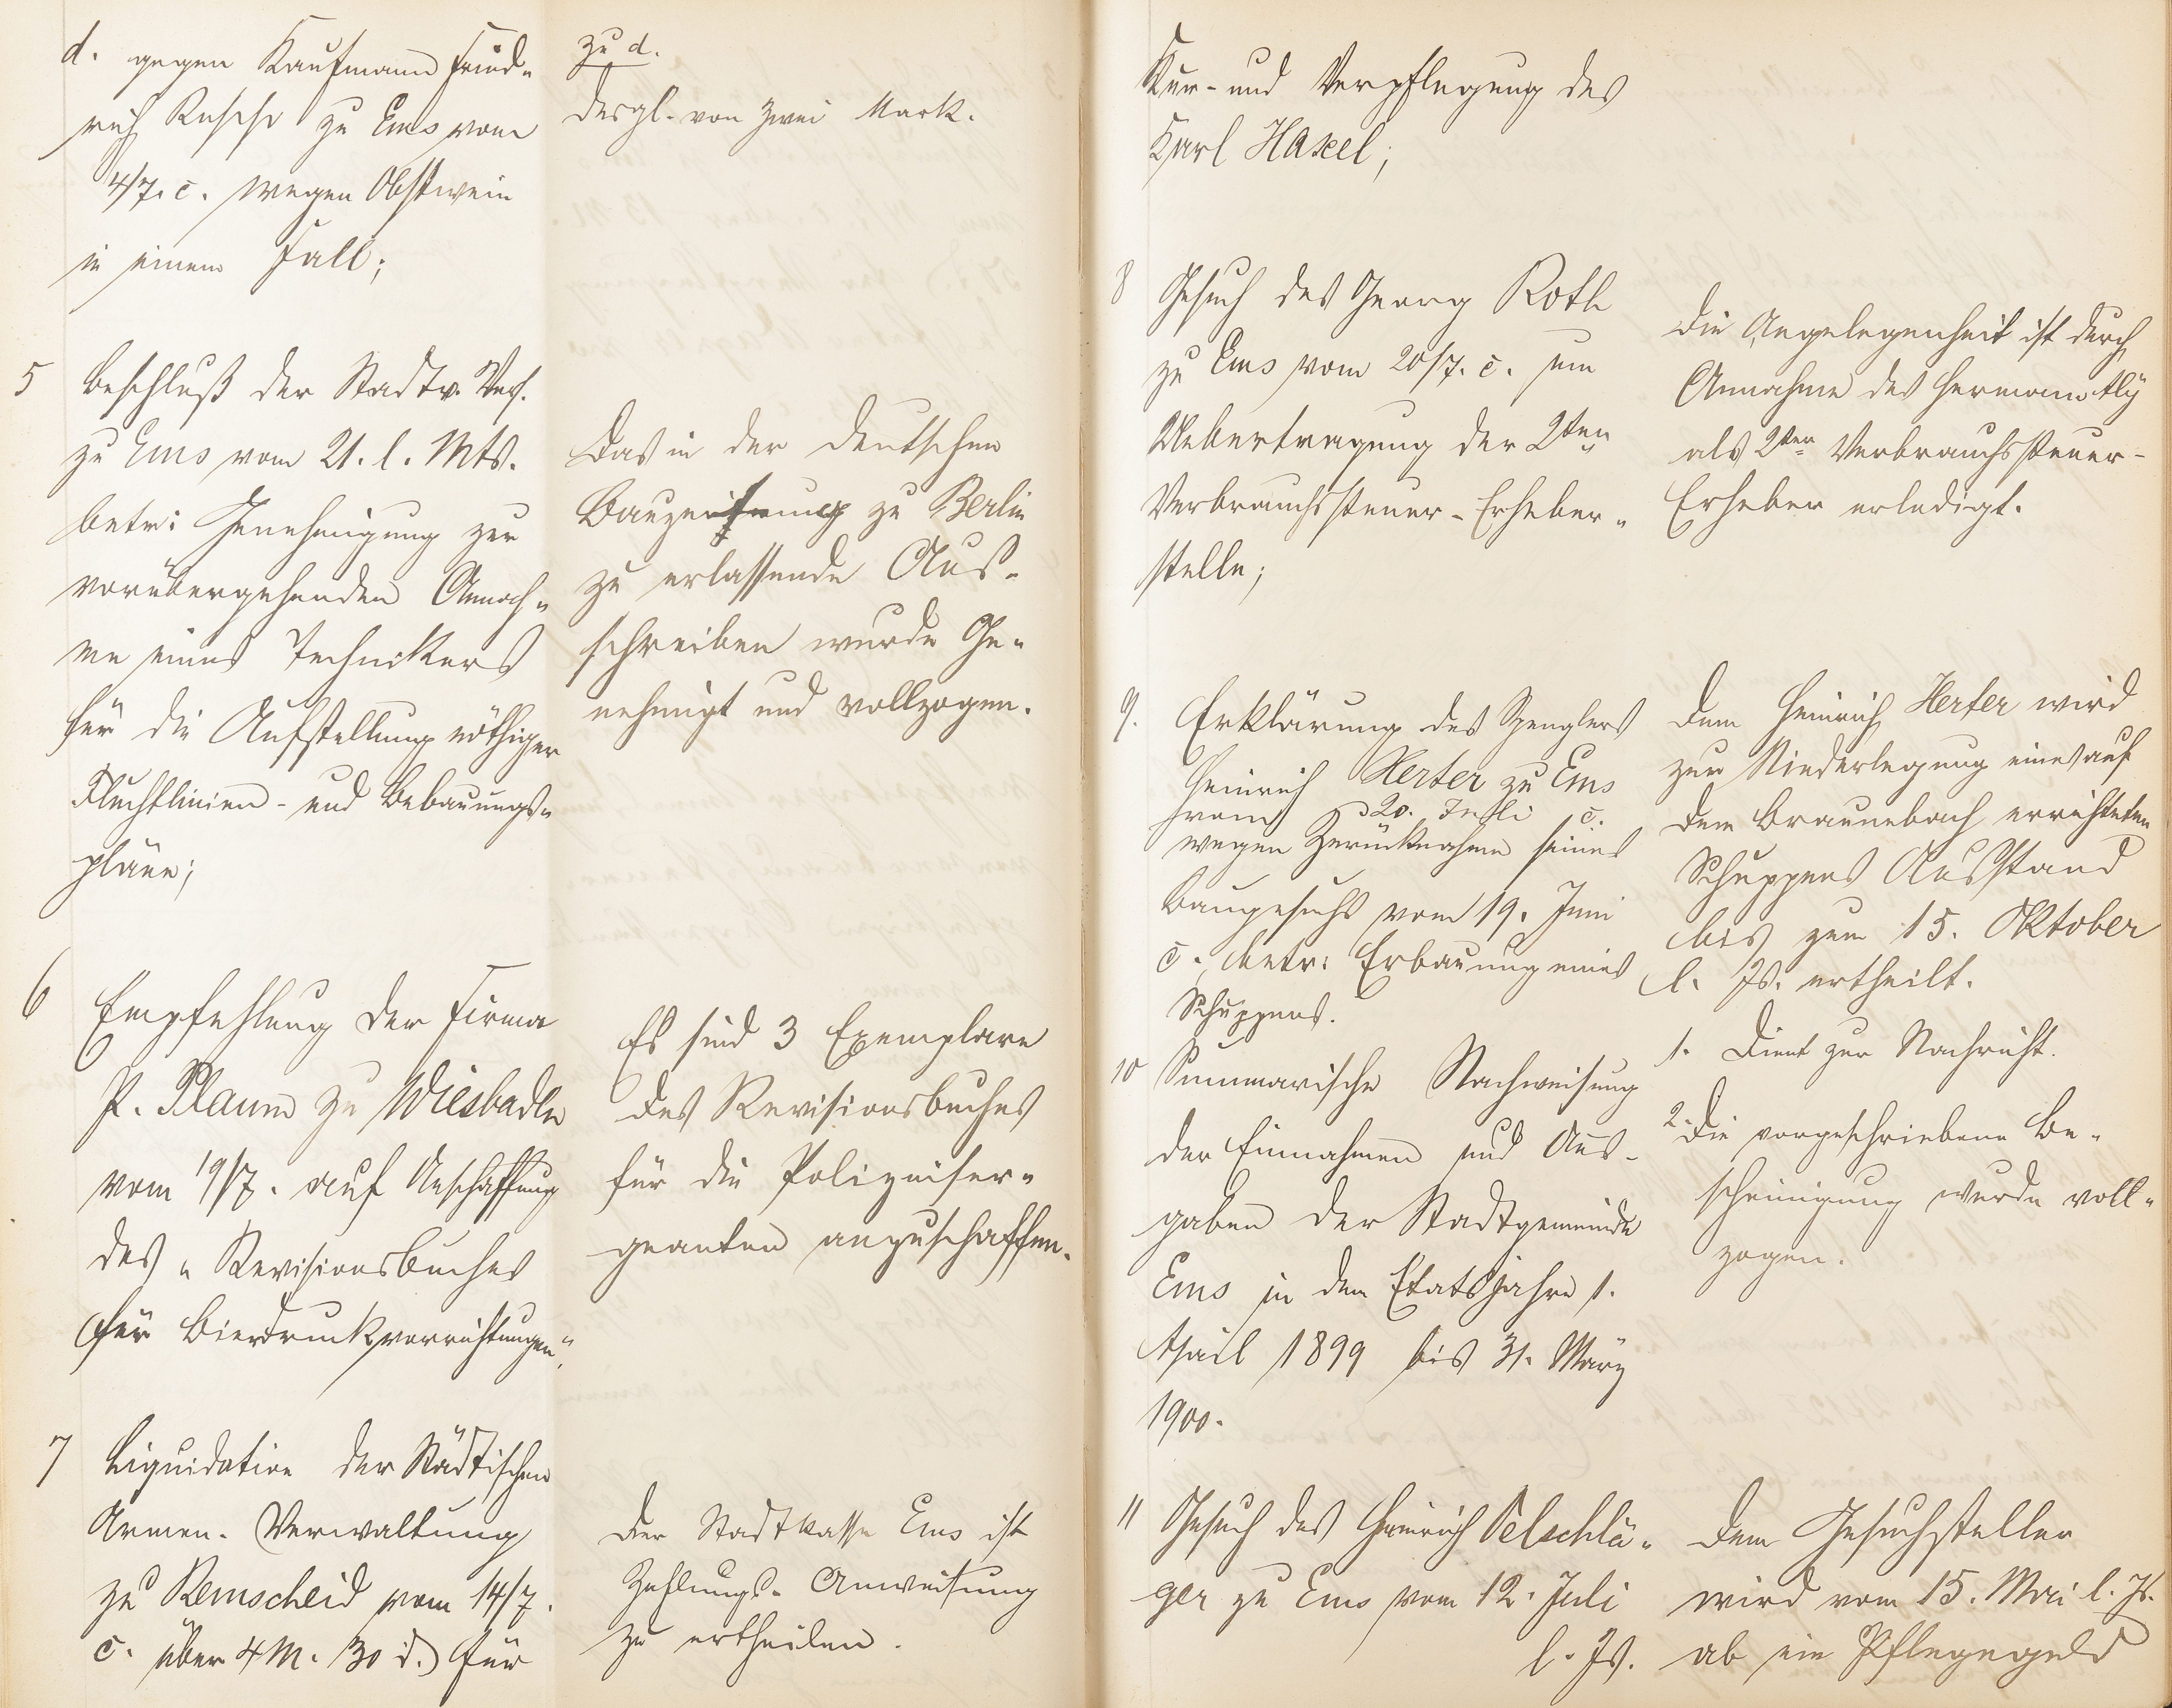 d. gegen Kaufmann Fried-
rich Rusche zu Ems vom
4/7. c. wegen Obstwein
in einem Fall;
zu d.
desgl. von zwei Mark.
5 Beschluß der Stadtv. Vers.
zu Ems vom 21. l. Mts.
betr: Genehmigung zur
vorübergehenden Annah-
me eines Technikers
für die Aufstellung nöthiger
Fluchtlinien- und Bebauungs-
pläne;
Das in der Deutschen
Bauzeitung zu Berlin
zu erlassende Aus-
schreiben wurde Ge-
nehmigt und vollzogen.
6 Empfehlung der Firma
P. Plaum zu Wiesbaden
vom 19/7. auf Anschaffung
des „Revisionsbuches
für Bierdruckvorrichtungen“.
Es sind 3 Exemplare
des Revisionsbuches
für die Polizeiser-
geanten anzuschaffen.
7 Liquidation der Städtischen
Armen-Verwaltung
zu Remscheid vom 14/7.
c. über 4 M. 30 d. für
Der Stadtkasse Ems ist
Zahlungs-Anweisung
zu ertheilen.
Kur- und Verpflegung des
Karl Hasel;
8 Gesuch des Georg Roth
zu Ems vom 20/7. c. um
Uebertragung der 2ten
Verbrauchssteuer-Erheber-
stelle;
Die Angelegenheit ist durch
Annahme des Hermann
als 2ten Verbrauchssteuer-
Erheber erledigt.
9. Erklärung des Spenglers
Heinrich Herter zu Ems
vom 20. Juli c.
wegen Zurücknahme seines
Baugesuchs vom 19. Juni
c. betr: Erbauung eines
Schuppens.
Dem Heinrich Herter wird
zur Niederlegung eines auf
dem Braunebach errichteten
Schuppens Ausstand
bis zum 15. Oktober
l. Js. ertheilt.
10 Summarische Nachweisung
der Einnahmen und Aus-
gaben der Stadtgemeinde
Ems in dem Etatsjahre 1.
April 1899 bis 31. März
1900.
1. Dient zur Nachricht.
2. Die vorgeschriebene Be-
scheinigung wurde voll-
zogen.
11 Gesuch des Heinrich Oelschlä-
ger zu Ems vom 12. Juli
l. Js.
Dem Gesuchsteller
wird vom 15. Mai l. Js.
ab ein Pflegegeld